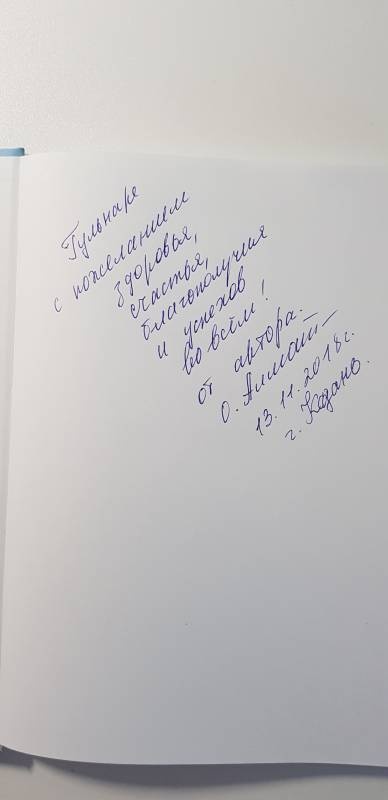 Гульнаре
с пожеланием
здоровья,
счастья,
благополучия
и успехов
во всём!
от автора.
О.
13.11.2018г.
г. Казань.